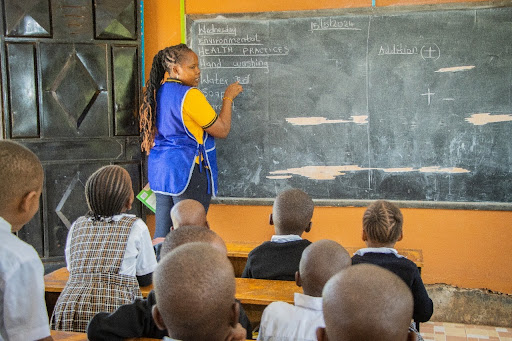 Wednesday 15/5/2024
Environmental
HEALTH PRACTICES
Hand washing
Water
Soap
Addition (+)
+